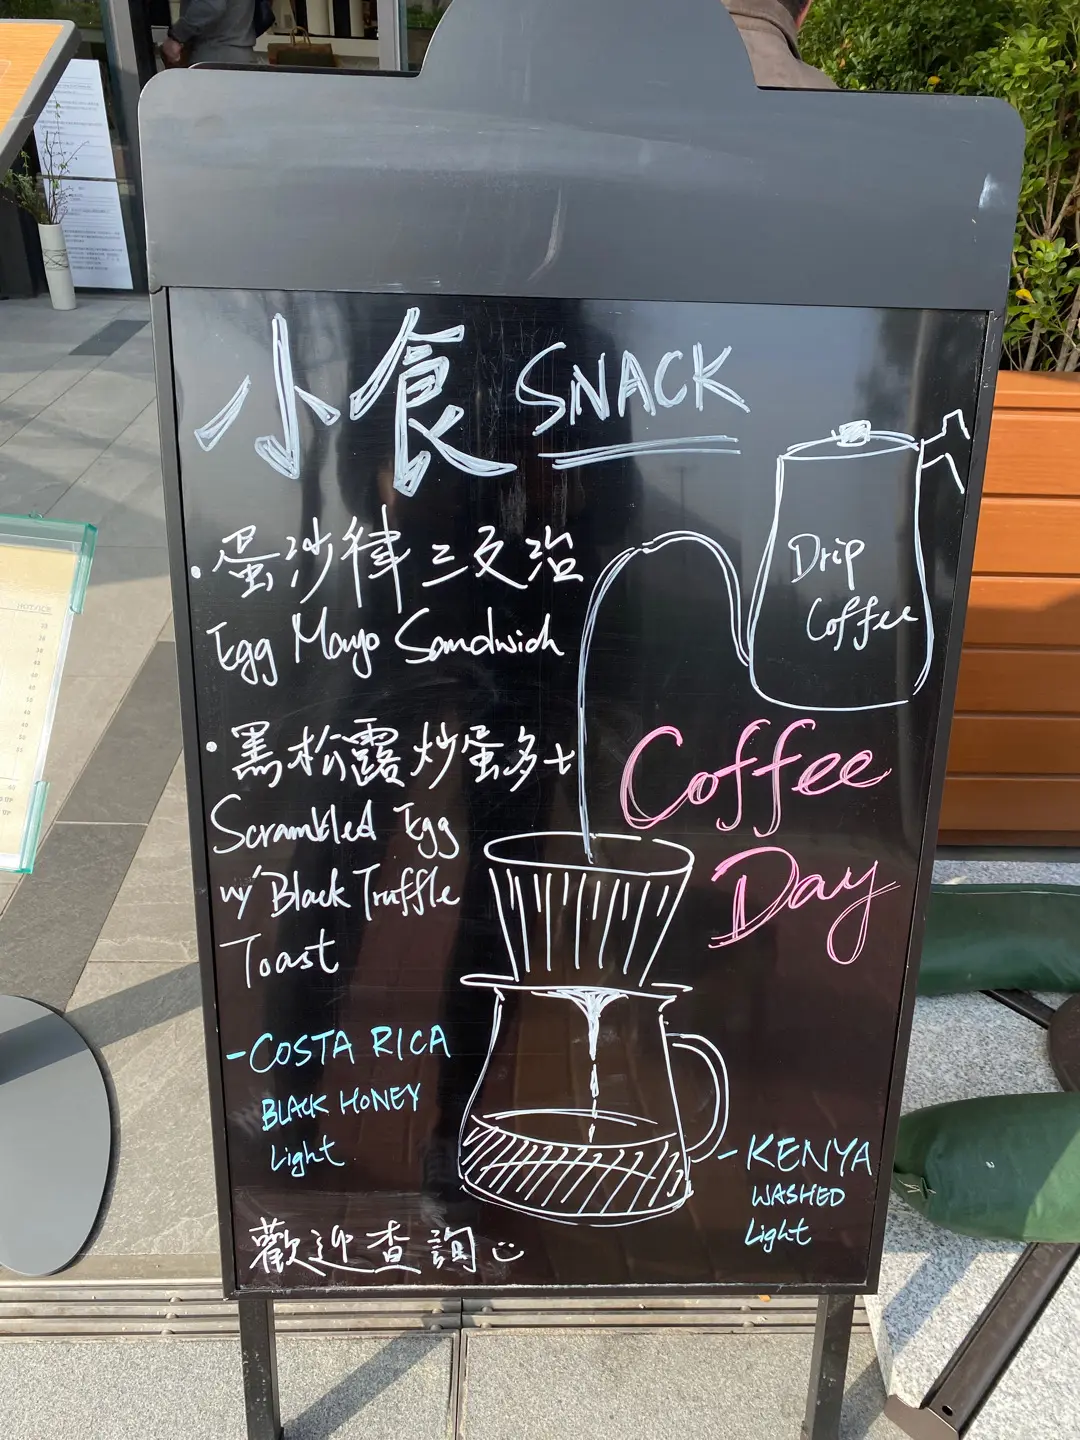 小食 SNACK
· 蛋沙律三文治
Egg Mayo Sandwich
· 黑松露炒蛋多士
Scrambled Egg
w/ Black Truffle
Toast
Drip
Coffee
Coffee
Day
- COSTA RICA
BLACK HONEY
Light
- KENYA
WASHED
Light
歡迎查詢